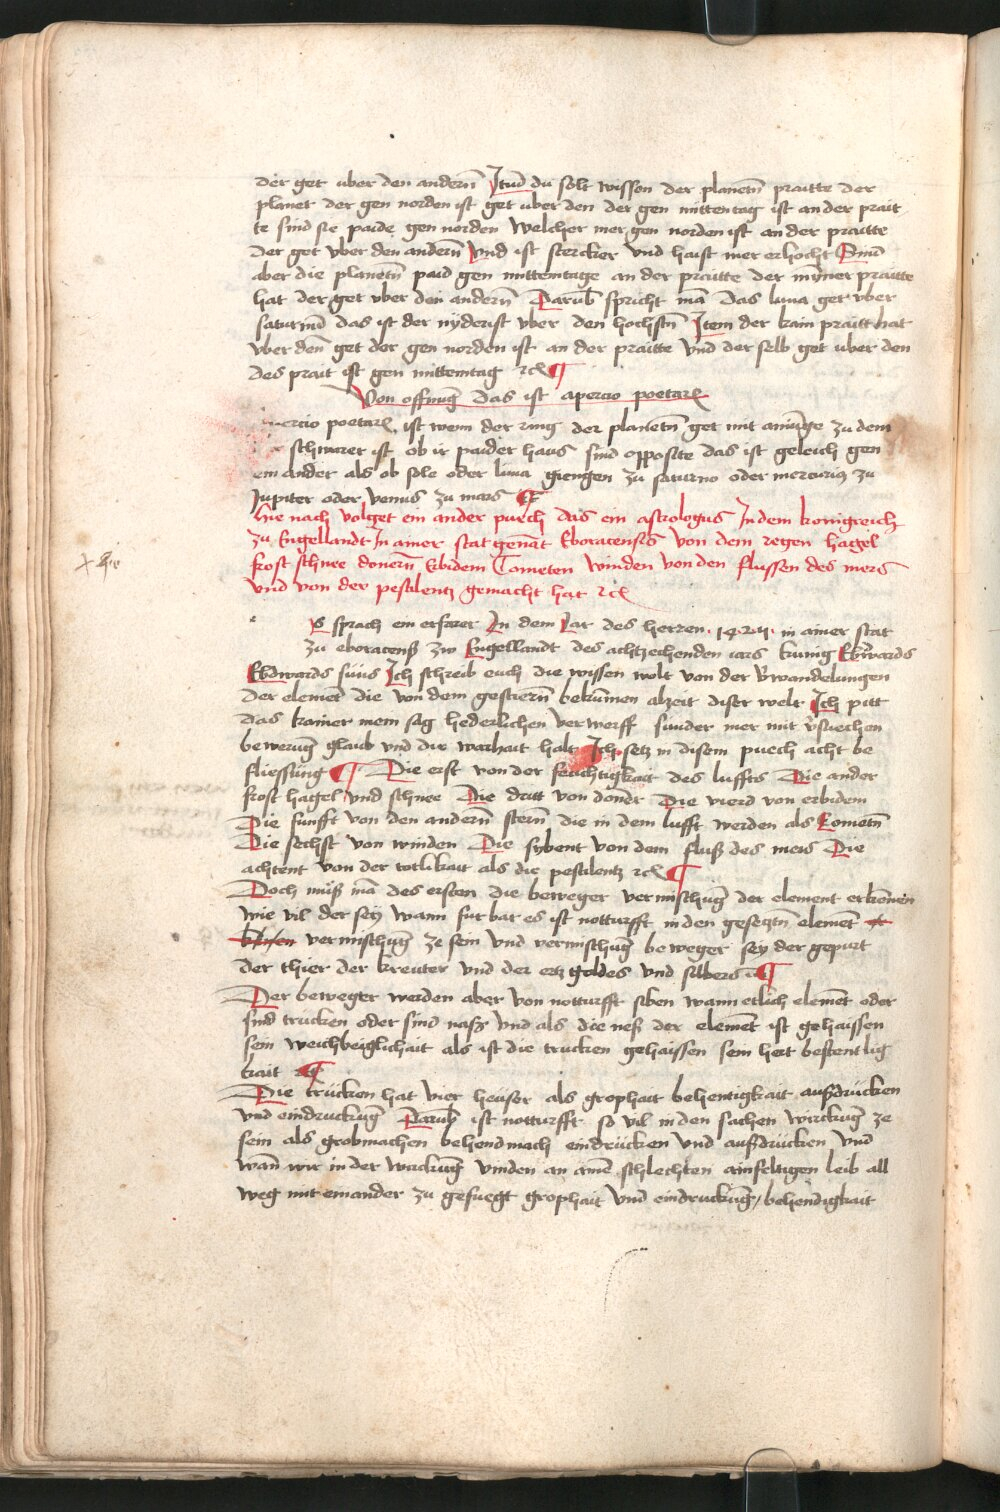 der get uber den andern̄ Itm̄ du solt wissen der planetn̄ praitte der
planet der gen norden ist get uber den der gen mittentag ist an der prait
te sind sie paide gen norden welcher mer gen norden ist an der praitte
der get vber den andern̄ Vnd ist stercker vnd haist mer erhocht Sint
aber die planetn̄ paid gen mittemtage an der praitte der mȳner praitte
hat der get vber den andern̄ Darub̄ spricht mā das luna get vber
saturnū das ist der nyderist vber den hochstn̄ Item der kain praitt hat
vber den get der gen norden ist an der praitte Vnd der selb get uber den
des prait ist gen mittemtag ⁊c̄
Von offnūg das ist apercio poetarꝝ
percio poetarꝝ ist wenn der ring der planetn̄ get mit ainūge zu dem
schwarer ist ob ir paider haus sind opposite das ist geleich gen
ein ander als ob sole oder luna giengen zu saturno oder mercurio zu
Jupiter oder venus zu mars
Hie nach volget ein ander puech das ein astrologus In dem konigreich
zu Engellandt In ainer stat genāt Eboracensis von dem regen hagel
frost schnee donern̄ erbidem Cometen winden von den flussen des mers
vnd von der pestilentz gemacht hat ⁊c̄
S sprach ein erfarer In dem Jar des herren · 14·24· in ainer stat
zu eboracenß zw Engellandt des achtzechenden iars kunig Edwards
Edwards suūs Ich schreib euch die wissen wolt von der v̄wandelungen
der element̄ die von dem gestiern̄ bekumen alzeit diser welt Ich pitt
das kainer mein sag hederlichen verwerff sunder mer mit v̄suechen
bewerūg glaub vnd die warhait halt Ich setz in disem puech acht be
fliessūng Die erst von der feuchtigkait des luffts Die ander
frost hagel vnd schnee Die dritt von donēr Die vierd von erbidem
Die funfft von den andern̄ stern̄ die in dem lufft werden als Cometn̄
Die sechst von winden Die sybent von dem fluß des mers Die
achtent von der totlikait als die pestilentz ⁊c̄
Doch muß mā des ersten die beweger vermischūg der element erkennen
wie vil der sey wann fur bar es ist notturfft in den gesetztn̄ elemēt
vermischūg ze sein vnd vermischūg beweger sey der gepurt
der thier der kreuter vnd der ertz goldes vnd silbers ⁊c̄
Der beweger werden aber von notturfft siben wann etlich elemēt oder
sind trucken oder sind naß vnd als die neß der elemēt ist gehaissen
sein weichbeiglichait als ist die trucken gehaissen sein hert bestentlig
kait ⁊c̄
Die trücken hat vier heuser als grophait behentigkait außdrücken
vnd eindruckūg Darub̄ ist notturfft so vil in den sachen wirckūg ze
sein als grobmachen behendmach eindrücken vnd außdrücken vnd
wan̄ wir in der wirckūg vinden an ainē schlechten ainfeltigen leib all
weg mit einander zu gefuegt grophait vnd eindruckūg / behendigkait